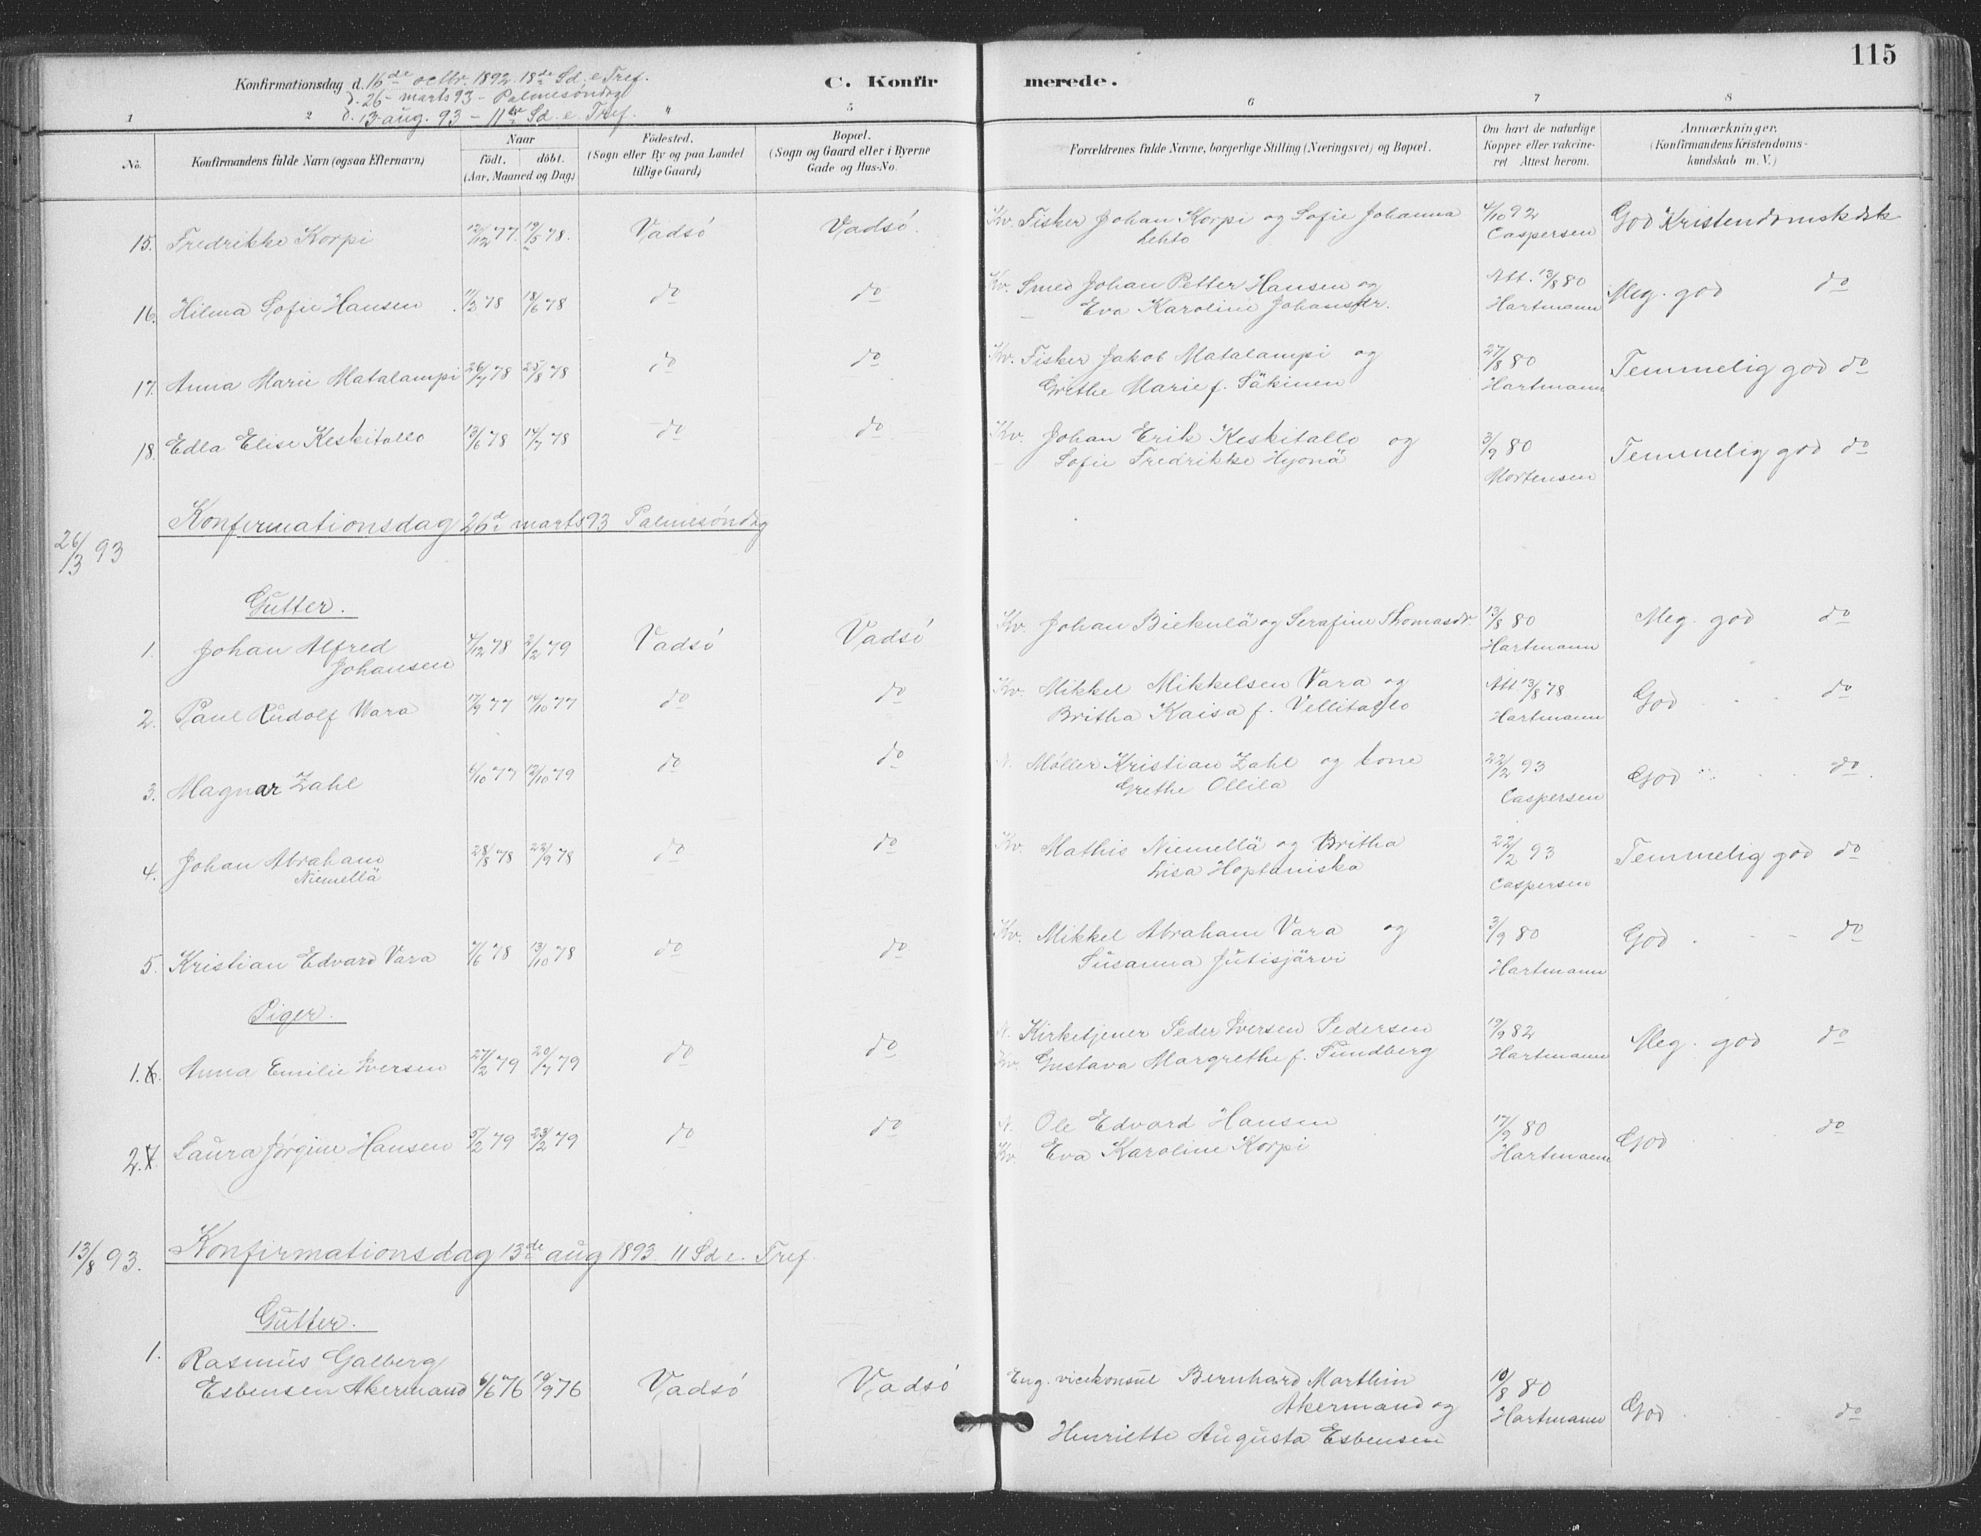 115
Konfirmationsdag d. 16de octbr. 1892. 18de Sd. e Tref.
d. 26 - marts 93 - Palmesøndag
d. 13 aug. 93 - 11te Sd. e. Tref.
C. Konfir merede.
1 2 " 5 6 7 8
No. Konfirmandens fulde Navn (ogsaa Efternavn)
Naar
født. døbt.
(Aar, Maaned og Dag)
Fødested.
(Sogn eller By og paa Landet
tillige Gaard)
Bopæl.
(Sogn og Gaard eller i Byerne
Gade og Hus-No.
Forældrenes fulde Navne, borgerlige Stilling (Næringsvei) og Bopæl.
Om havt de naturlige
Kopper eller vakcine-
ret Attest herom.
Anmærkninger.
(Konfirmandens Kristendoms-
kundskab m. V.)
15. Fredrikke Korpi 12/12 77. 19/5 78. Vadsö Vadsö. Kv. Fisker Johan Korpi og Sofie Johanna 4/10 92 God Kristendomskdsk
Lehto Caspersen
16. Hilma Sofie Hansen 11/2 78 18/6 78 do do Kv. Smed Johan Petter Hansen og Att. 13/8 80 Meg. god do
Eva Karoline Johansdr. Hartmann
17. Anna Marie Matalampi 26/7 78 25/8 78 do do Kv. Fisker Jakob Matalampi og 27/8 80 Temmelig god do
Grethe Marie f. Säkinen Hartmann
18. Edla Elise Keskitallo 13/6 78 14/7 78 do do Kv. Johan Erik Keskitallo og 3/9 80 Temmelig god do
Sofie Fredrikke Hyonä Mortensen
26/13 93 Konfirmationsdag 26de marts 93 Palmesöndag
Gutter.
1. Johan Alfred 4/12 78 2/2 79 Vadsö Vadsö Kv. Johan Biekulä og Serafine Thomasdr. 13/8 80 Meg. god do
Johansen Hartmann
2. Paul Rudolf Wara 17/9 77 14/10 77 do do Kv. Mikkel Mikkelsen Vara og Att. 13/8 78 God do
Britha Kaisa f. Vellitallo Hartmann
3. Magnar Zahl 6/10 77 12/10 79 do do N. Møller Kristian Zahl og kone 22/2 93 God do
Grethe Ollila Caspersen
4. Johan Abraham 28/8 78 22/9 78 do do Kv. Mathis Niemellä og Britha 22/2 93 Temmelig god do
Niemellä Lisa Hoptaniska Caspersen
5. Kristian Edvard Vara 7/6 78 13/10 78 do do Kv. Mikkel Abraham Vara og 3/9 80 God do
Susanna Jutisjärvi Hartmann
Piger.
1. Anna Emilie Iversen 27/2 79 20/7 79 do do N. Kirketjener Peder Iversen Pedersen 19/9 82 Meg. god do
Kv. Gustava Margrethe f. Sundberg Hartmann
2. Laura Jørgine Hansen 5/2 79 23/2 79 do do N. Ole Edvard Hansen 17/9 80 God do
Kv. Eva Karoline Korpi Hartmann
13/8 93. Konfirmationsdag 13de aug 1893 11 Sd e. Tref.
Gutter.
1. Rasmus Galberg
Esbensen Akermand 6/6 76 19/9 76 Vadsö Vadsö Eng. vicekonsul Bernhard Marthin 10/8 80
Akermand og Hartmann God do
Henriette Augusta Esbensen